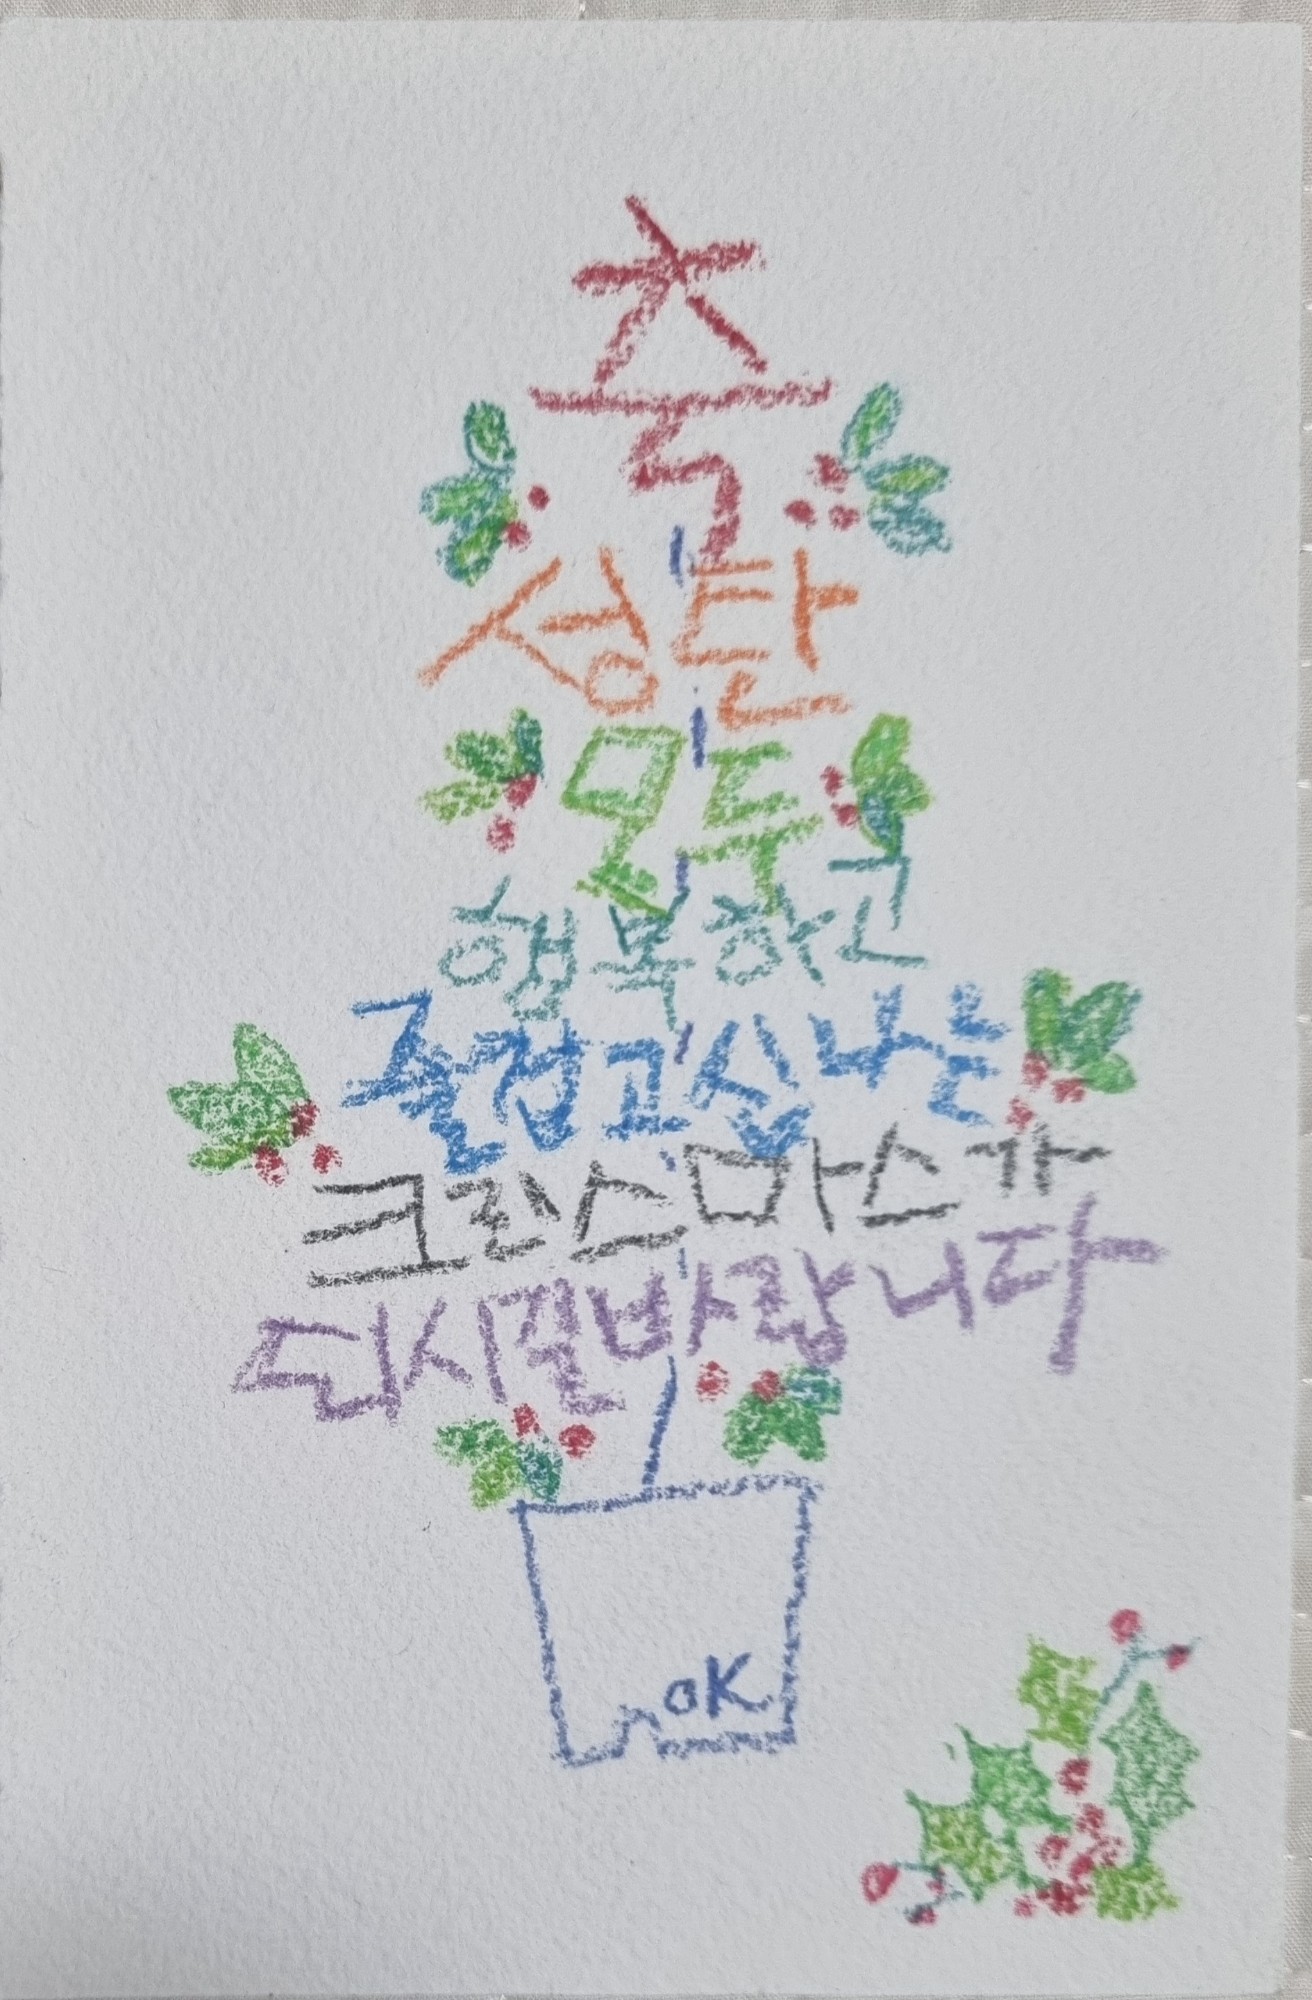 축
성탄
모두
행복하고
즐겁고 신나는
크리스마스가
되시길 바랍니다
OK